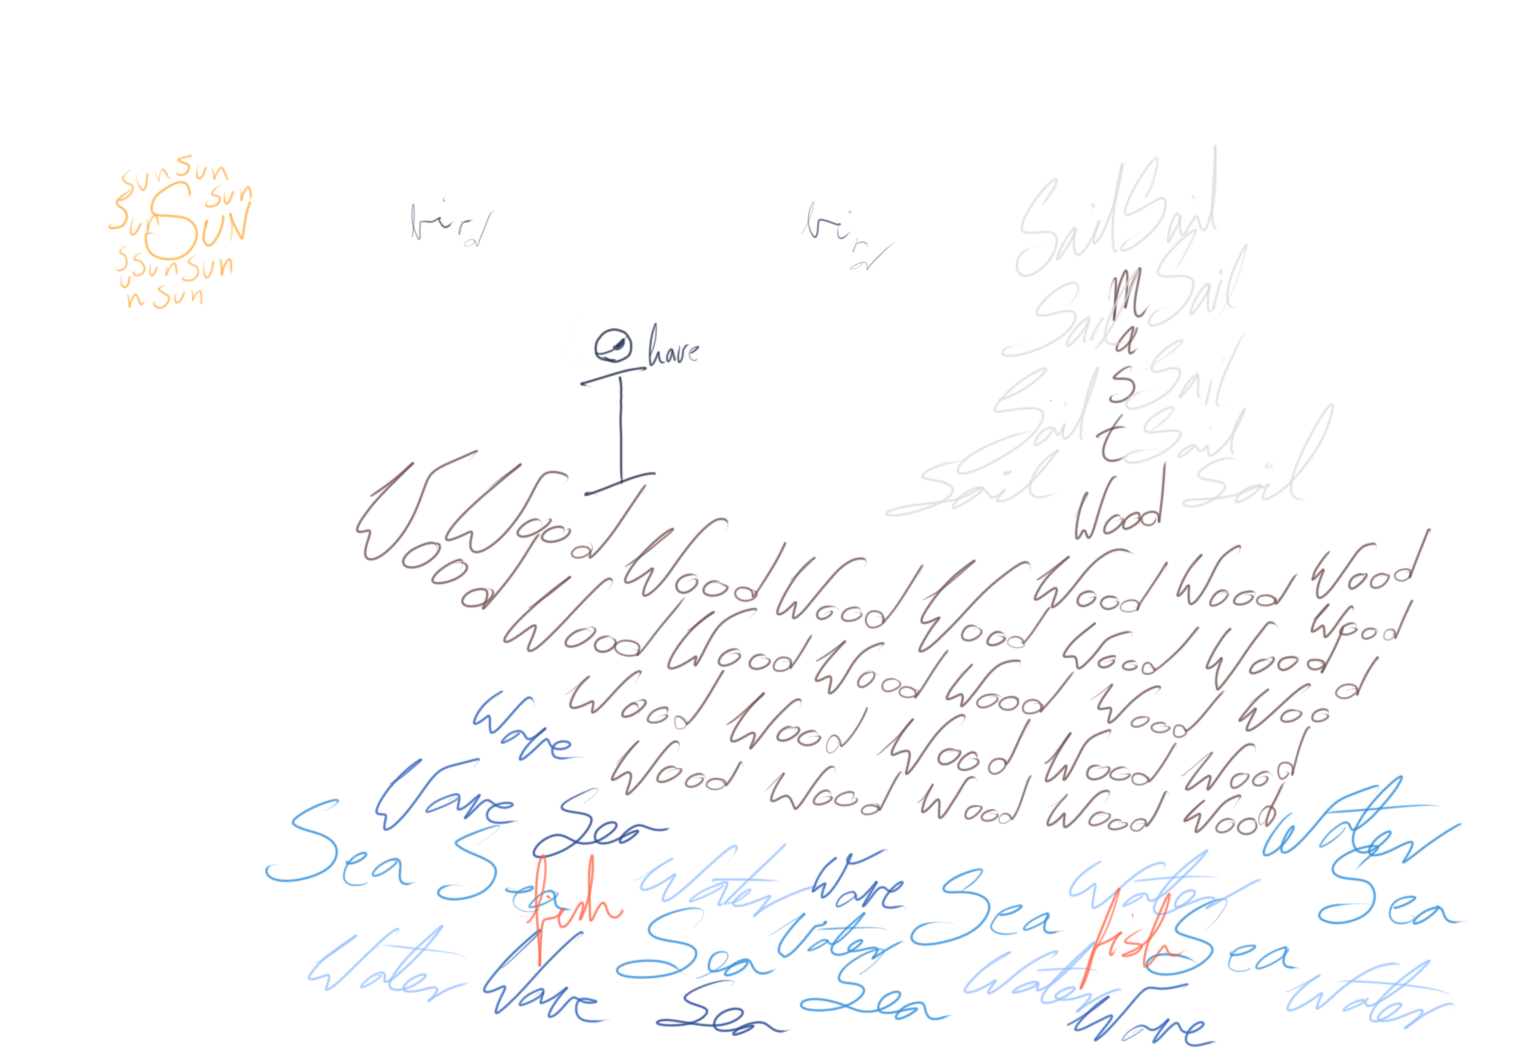 sun sun
sun
Sun SUN
s sun sun
u
n sun
bird
bird
Sail Sail
Mast
Sail Sail
Sail Sail
Sail
Sail Sail
have
Wood
Wood Wood Wood Wood Wood Wood Wood Wood
Wood Wood Wood Wood Wood Wood Wood
Wood Wood Wood Wood Wood Wood
Wood Wood Wood Wood Wood
Wave
Wave Sea
Water
Sea Sea fish Water Wave Sea Water fish Sea
Water Sea Water Sea
Water Wave Sea Sea Water Wave Water